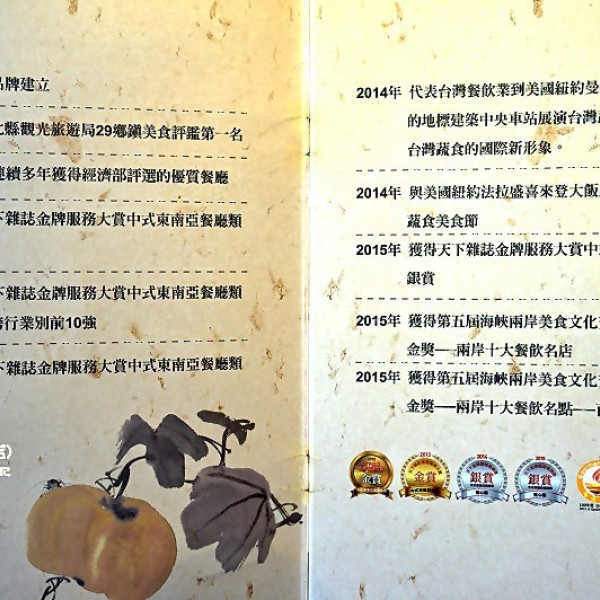 品牌建立
縣觀光旅遊局29鄉鎮美食評鑑第一名
連續多年獲得經濟部評選的優質餐廳
下雜誌金牌服務大賞中式東南亞餐廳類
下雜誌金牌服務大賞中式東南亞餐廳類
跨行業別前10強
下雜誌金牌服務大賞中式東南亞餐廳類
2014年 代表台灣餐飲業到美國紐約曼
的地標建築中央車站展演台灣
台灣蔬食的國際新形象。
2014年 與美國紐約法拉盛喜來登大飯
蔬食美食節
2015年 獲得天下雜誌金牌服務大賞中
銀賞
2015年 獲得第五屆海峽兩岸美食文化
金獎──兩岸十大餐飲名店
2015年 獲得第五屆海峽兩岸美食文化
金獎──兩岸十大餐飲名點──
金賞
2013
金賞
2014
銀賞
2015
銀賞